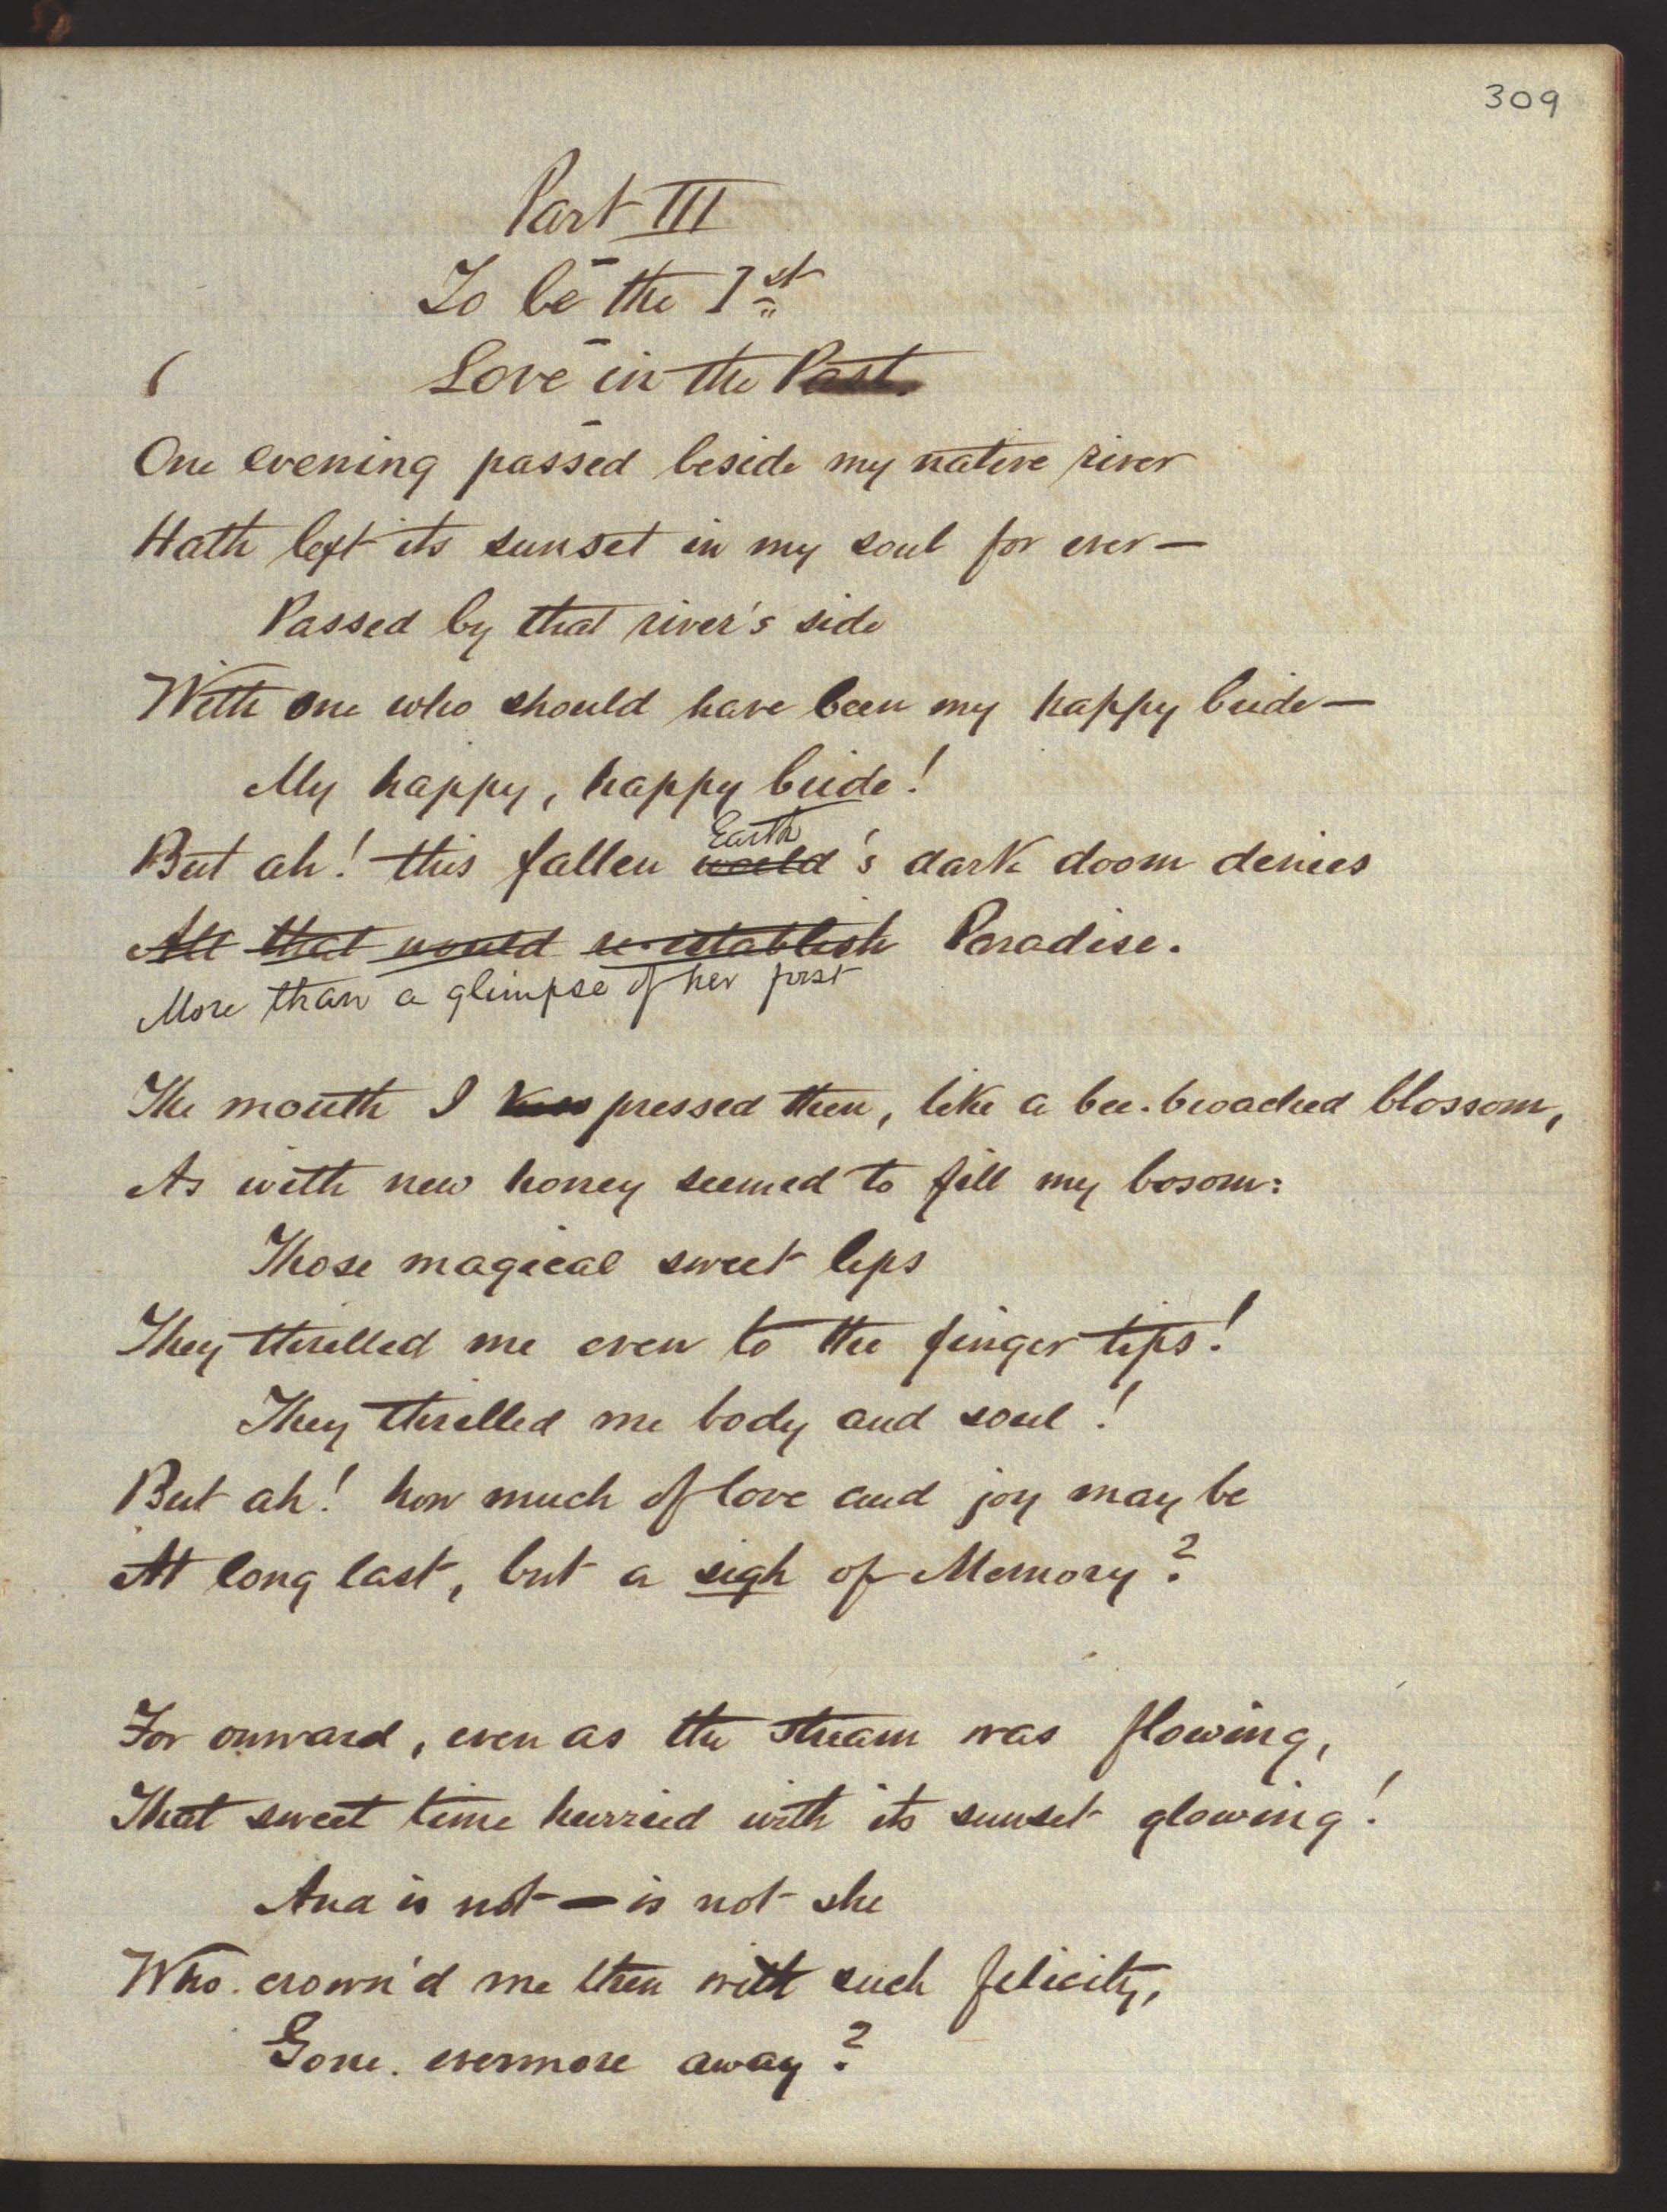 309
Part III
To be the 1st
Love in the Past.
One evening passed beside my native river
Hath left its sunset in my soul for ever—
Passed by that river's side
With one who should have been my happy bride—
My happy, happy bride!
Earth
But ah! this fallen world's dark doom denies
All that would re-establish Paradise.
More than a glimpse of her first
The mouth I kiss pressed then, like a bee-broached blossom,
As with new honey seemed to fill my bosom:
Those magical sweet lips
They thrilled me even to the finger tips!
They thrilled me body and soul!
But ah! how much of love and joy may be
At long last, but a sigh of Memory?
For onward, even as the stream was flowing,
That sweet time hurried with its sunset glowing!
And is not — is not she
Who crown'd me then with such felicity,
Gone evermore away?